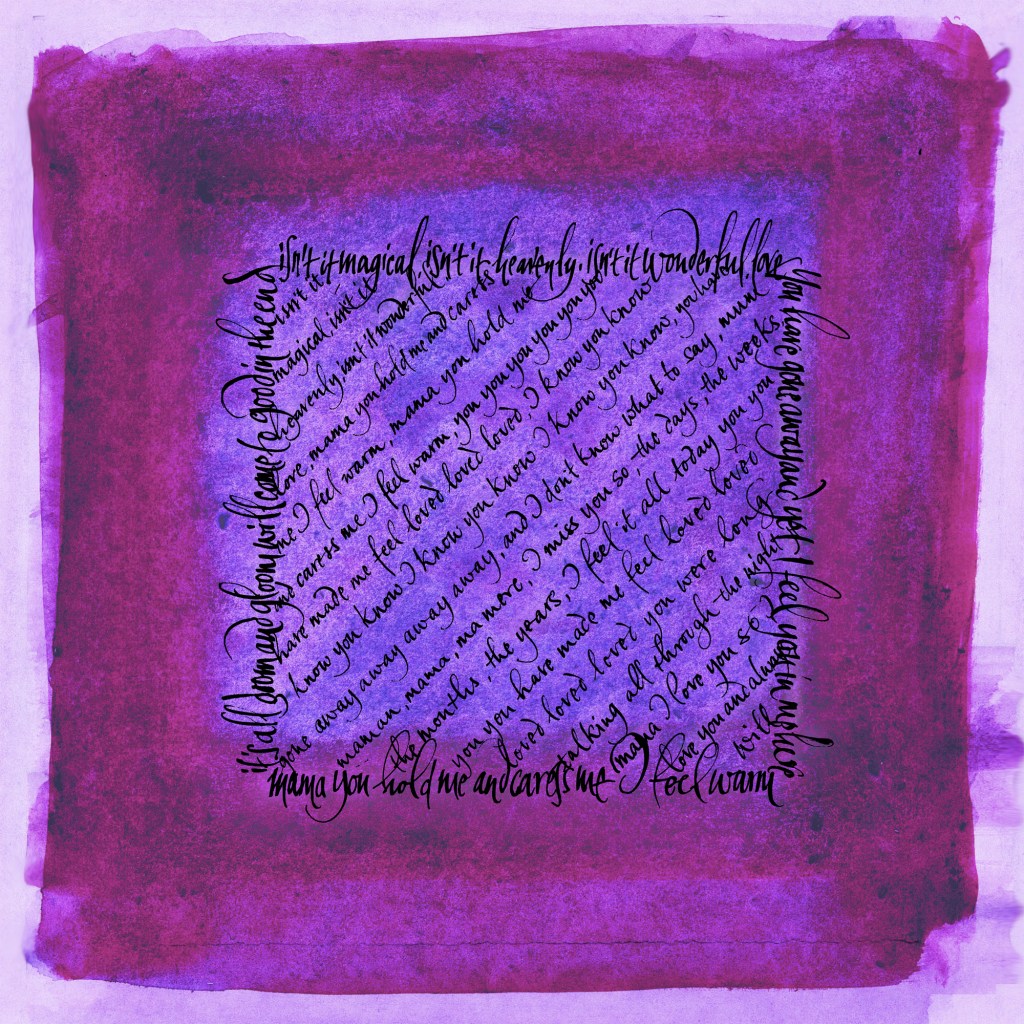 isn't it magical, isn't it heavenly. isn't it wonderful love
you have gone away and yet I feel you in my here
mama you hold me and caress me I feel warm
it's all doom and gloom will come to good in the end
isn't it
magical, isn't it
heavenly, isn't it wonderful
love, mama you hold me and carets
me I feel warm, mama you hold me
and carets me I feel warm, you you you you you
have made me feel loved loved loved, I know you know
I know you know I know you know I know you know, you have
gone away away away away, and I don't know what to say, mum
maman, mama, ma mere, I miss you so, the days, the weeks,
the months, the years, I feel it all today you you
you you have made me feel loved loved
loved loved loved you were long
talking all through the night
mama I love you so
love you and always
will